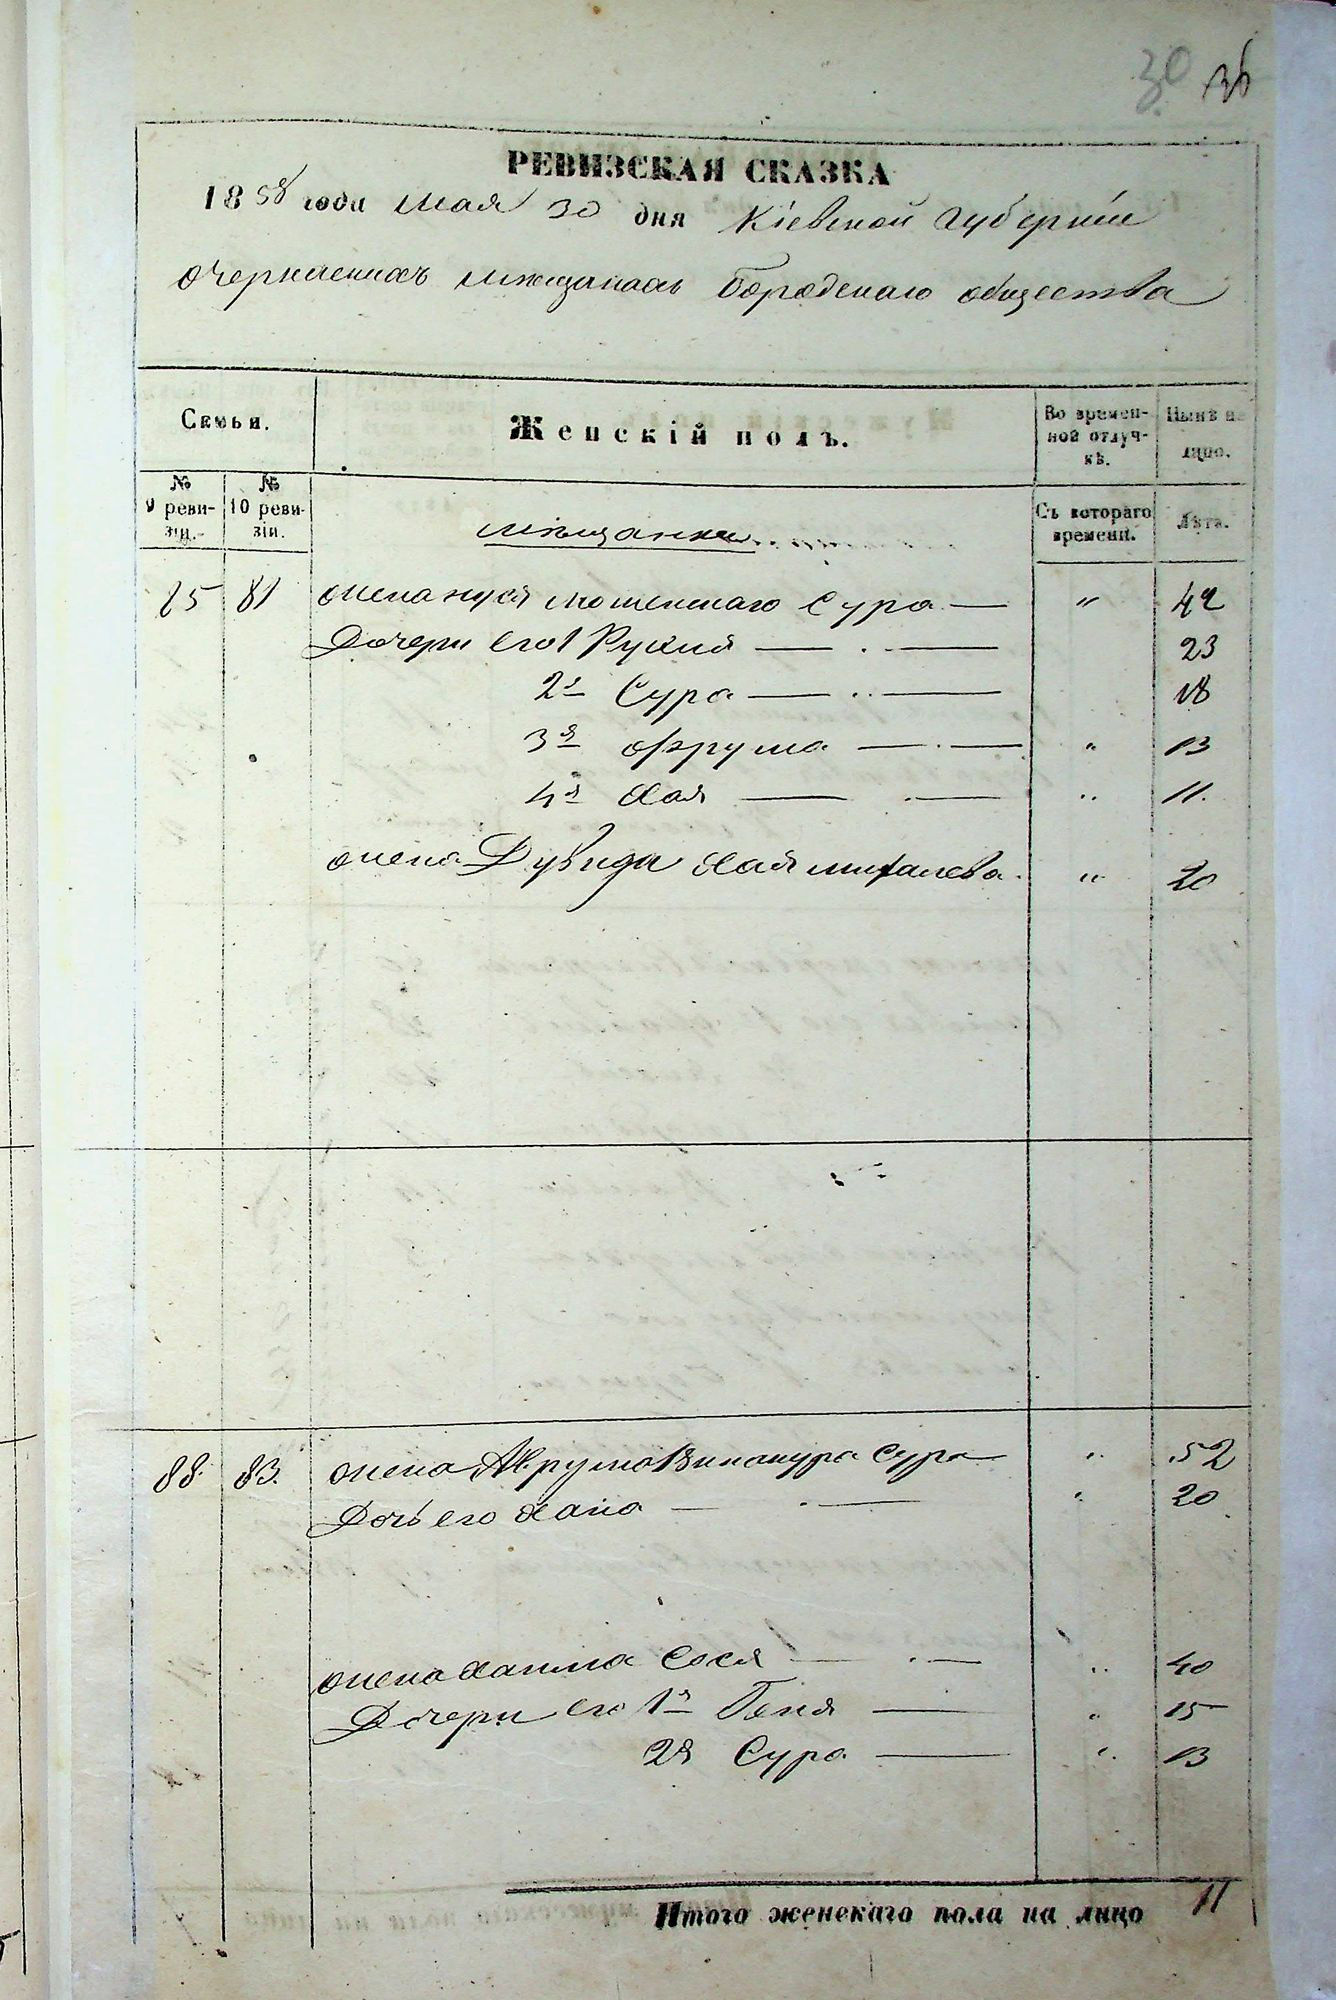 30 36
РЕВИЗСКАЯ СКАЗКА
1858 года мая 30 дня Кіевской губерніи
о черкаскихъ мѣщанахъ общества
Семьи. Женскій полъ. Во времен-ной отлуч-кѣ. Нынѣ на лицо.
№ 9 реви-зіи. № 10 реви-зіи. Съ котораго времени. Лѣта.
мѣщанки
81 жена Сура — " 42
Дочери его 1 Рухля — . — 23
2я Сура — .. — 18
3я Фрума — . — " 13
4я Хая — . — " 11.
жена Дувида Хая " 20
88. 83. жена Аврума Винакура Сура " 52
Дочь его Хана — . — " 20
жена Хаима Сося — . — " 40
Дочери его 1я Геня — " 15
2я Сура — " 13
Итого женскаго пола на лицо 11